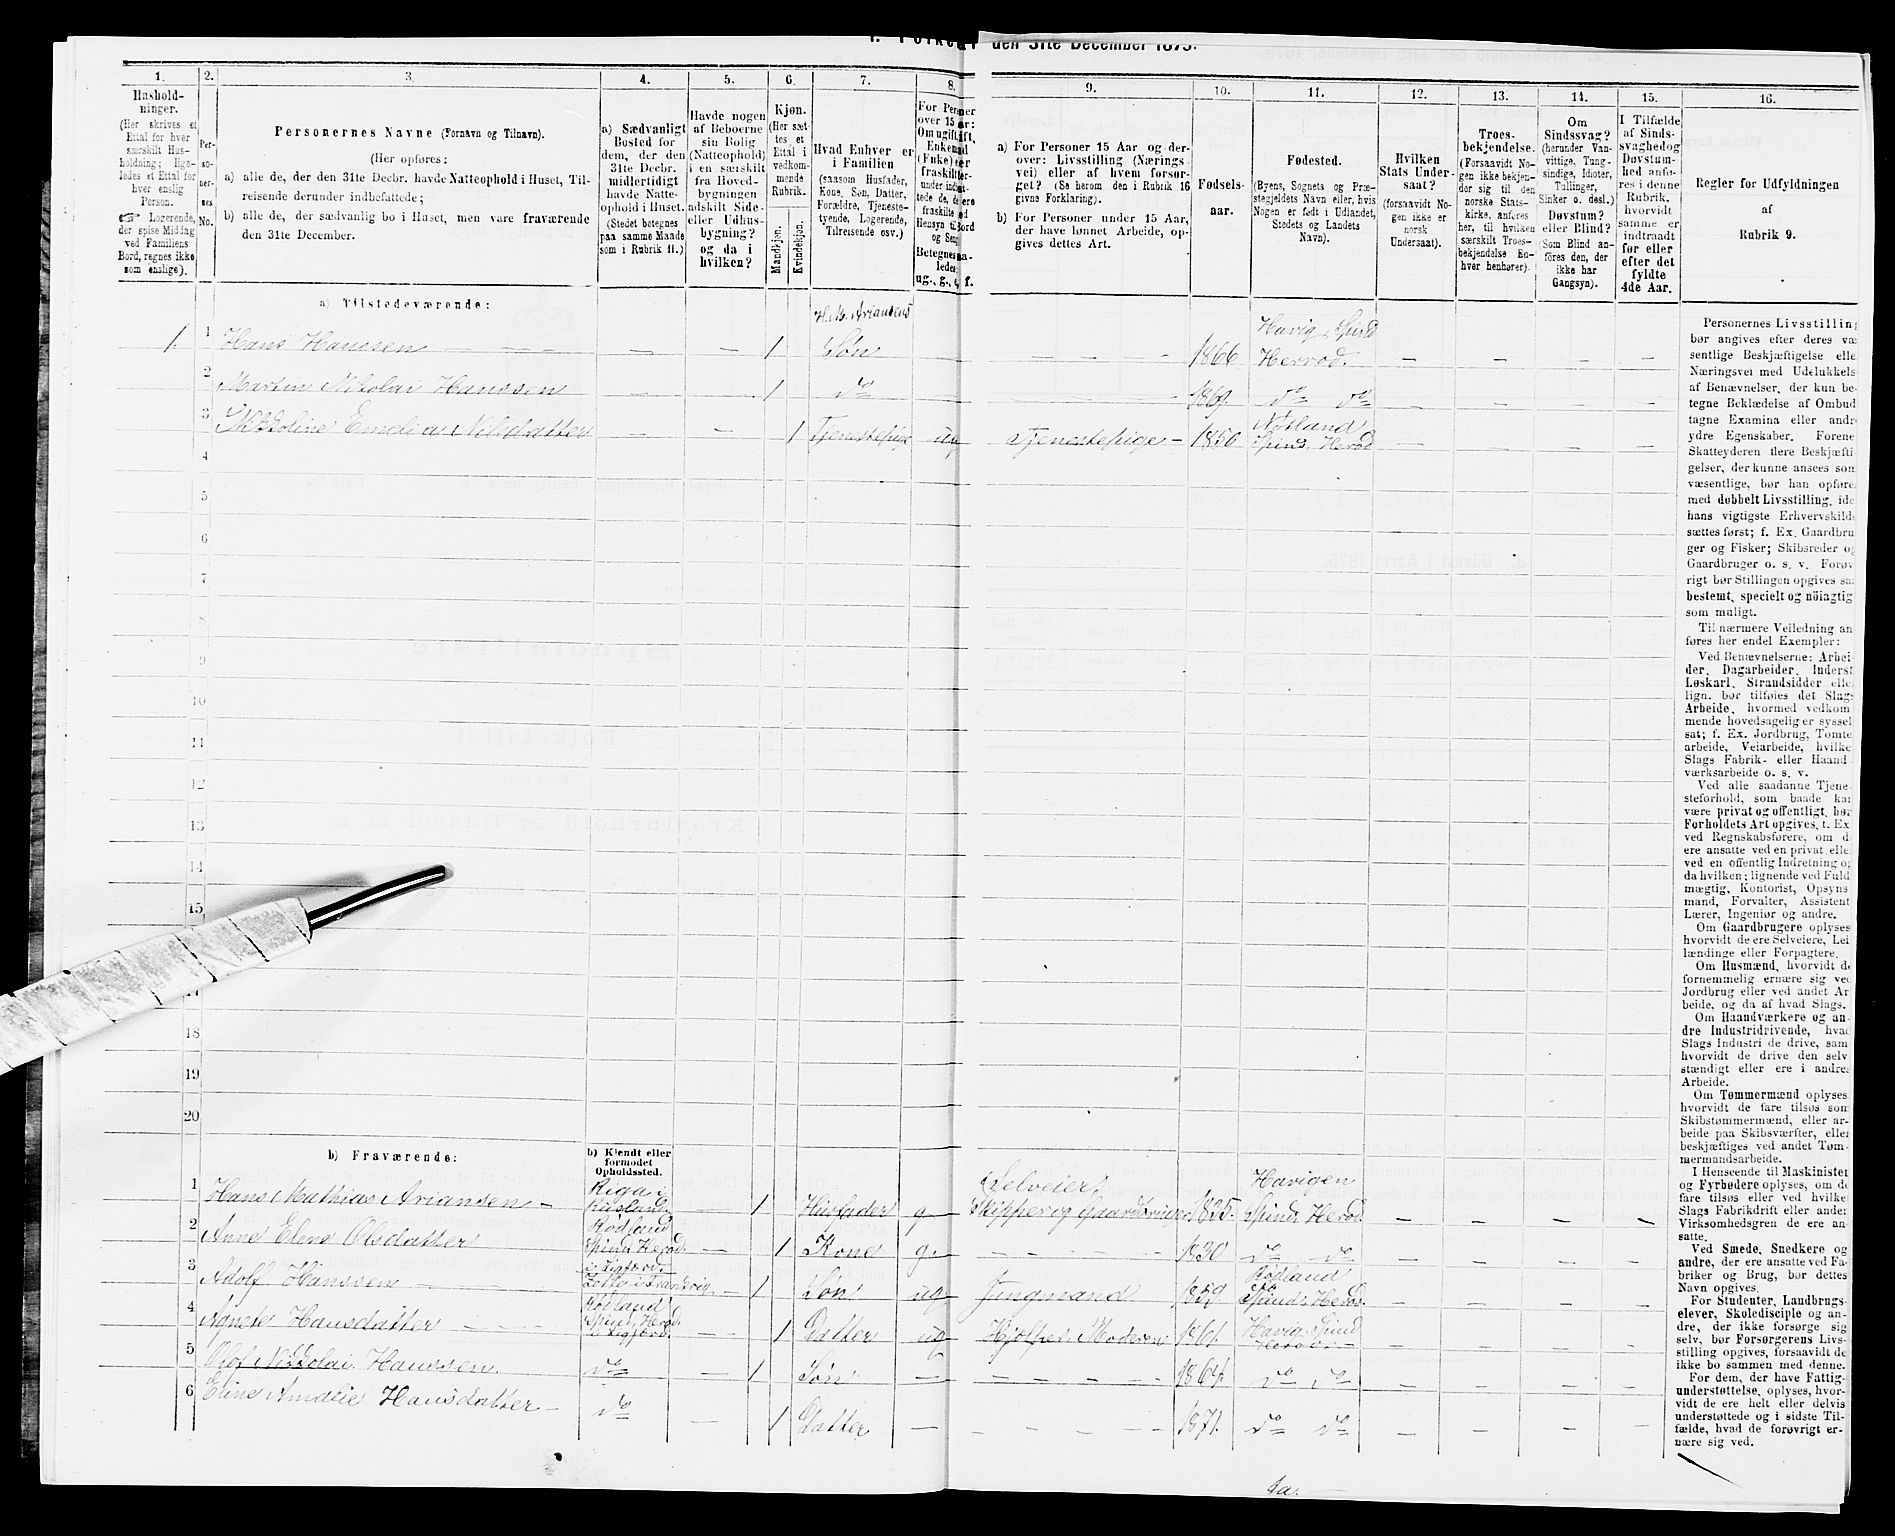 I. Folketal den 31te December 1875.
1.
2.
3.
4.
5.
6.
7.
8.
9.
10.
11.
12.
13.
14.
15.
16.
Hushold-
ninger.
(Her skrives et
Ettal for hver
særskilt Hus-
holdning; lige-
ledes et Ettal for
hver enslig
Person.
☞ Logerende,
der spise Middag
ved Familiens
Bord, regnes ikke
som enslige).
Per-
so-
ner-
nes
No.
Personernes Navne (Fornavn og Tilnavn).
(Her opføres:
a) alle de, der den 31te Decbr. havde Natteophold i Huset, Til-
reisende derunder indbefattede;
b) alle de, der sædvanlig bo i Huset, men vare fraværende
den 31te December.
a) Sædvanligt
Bosted for
dem, der den
31te Decbr.
midlertidigt
havde Natte-
ophold i Huset.
(Stedet betegnes
paa samme Maade
som i Rubrik 11.)
Havde nogen
af Beboerne
sin Bolig
(Natteophold)
i en særskilt
fra Hoved-
bygningen
adskilt Side-
eller Udhus-
bygning?
og da i
hvilken?
Kjøn.
(Her sæt-
tes et
Ettal i
vedkom-
mende
Rubrik.
Mandkjøn.
Kvindekjøn.
Hvad Enhver er
i Familien
(saasom Husfader,
Kone, Søn, Datter,
Forældre, Tjeneste-
tyende, Logerende,
Tilreisende osv.)
For Personer
over 15 Aar:
Om ugift,
Enkemand
(Enke) eller
fraskilt
ug., g., e., f.
a) For Personer 15 Aar og der-
over: Livsstilling (Nærings-
vei) eller af hvem forsør-
get? (Se herom den i Rubrik 16
givne Forklaring).
b) For Personer under 15 Aar,
der have lønnet Arbeide, op-
gives dettes Art.
Fødsels-
aar.
Fødested.
(Byens, Sognets og Præ-
stegjeldets Navn eller, hvis
Nogen er født i Udlandet,
Stedets og Landets
Navn).
Hvilken
Stats Under-
saat?
(forsaavidt No-
gen ikke er
norsk
Undersaat).
Troes-
bekjendelse.
(Forsaavidt No-
gen ikke bekjen-
der sig til den
norske Stats-
kirke, anføres
her, til hvilken
særskilt Troes-
bekjendelse En-
hver henhører).
Om
Sindssvag?
(herunder Van-
vittige, Tung-
sindige, Idioter,
Tullinger,
Sinker o. desl.)
Døvstum?
eller Blind?
(Som Blind an-
føres den, der
ikke har
Gangsyn).
I Tilfælde
af Sinds-
svaghed og
Døvstum-
hed anfø-
res i denne
Rubrik,
hvorvidt
samme er
indtraadt
før eller
efter det
fyldte
4de Aar.
Regler for Udfyldningen
af
Rubrik 9.
a) Tilstedeværende:
1. 1 Hans Hanssen — — 1 H. M. Ariansens Søn — — 1866 Havig, Spind Herrod. — — — —
2 Martin Nikolai Hanssen — — 1 do — 1869. do do — — — —
3 Emelia Nilsdatter — — 1 Tjenestepige ug Tjenestepige — 1850 Spind, Herod — — — —
4
5
6
7
8
9
10
11
12
13
14
15
17
18
19
20
b) Fraværende:
b) Kjendt eller
formodet
Opholdssted.
1 Hans Mathias Ariansen — Riga i Rusland. 1 Husfader g — (Selveier) Skipper og Gaardbruger 1835. Havigen Spind, Herod. — — — —
2 Anne Elene Olsdatter Rødland Spind, Herod. — 1 Kone g. — 1830 do do — — — —
3 Adolf Hanssen — 1 Søn ug Jungmand 1859. Rødland, Spind, Herod. — — — —
4 Agnete Hansdatter Rødland Spind, Herod. — 1 Datter ug Hjælper Moderen 1861. Havig, Spind — — — —
5 Olof Nikolai Hanssen. do — 1 Søn — 1864. do do — — — —
6 Eline Amalie Hansdatter — do — 1 Datter — 1871. do do — — — —
Personernes Livsstilling
bør angives efter deres væ
sentlige Beskjæftigelse elle
Næringsvei med Udelukkels
af Benævnelser, der kun be-
tegne Beklædelse af Ombud
tagne Examina eller andr
ydre Egenskaber. Forene
Skatteyderen flere Beskjæfti-
gelser, der kunne ansees som
væsentlige, bør han opføre
med dobbelt Livsstilling, ide
hans vigtigste Erhvervskilde
sættes først; f. Ex. Gaardbru
ger og Fisker; Skibsreder og
Gaardbruger o. s. v. Forøv
rigt bør Stillingen opgives saa
bestemt, specielt og nöiagtig
som muligt.
Til nærmere Veiledning an
føres her endel Exempler:
Ved Benævnelserne: Arbei
der, Dagarbeider, Inderst
Løskarl, Strandsidder elle
lign. bør tilføies det Slags
Arbeide, hvormed vedkom
mende hovedsagelig er syssel
sat; f. Ex. Jordbrug, Tomte
arbeide, Veiarbeide, hvilke
Slags Fabrik- eller Haand
værksarbeide o. s. v.
Ved alle saadanne Tjene
steforhold, som baade kan
være privat og offentligt, bør
Forholdets Art opgives, t. Ex
ved Regnskabsførere, om d
ere ansatte ved en privat elle
ved en offentlig Indretning og
da hvilken; lignende ved Fuld
mægtig, Kontorist, Opsyns
mand, Forvalter, Assistent
Lærer, Ingeniør og andre.
Om Gaardbrugere oplyses
hvorvidt de ere Selveiere, Lei
lændinge eller Forpagtere.
Om Husmænd, hvorvidt de
fornemmelig ernære sig ved
Jordbrug eller ved andet Ar
beide, og da af hvad Slags.
Om Haandværkere og an-
dre Industridrivende, hvad
Slags Industri de drive, samt
hvorvidt de drive den selv-
stændigt eller ere i andres
Arbeide.
Om Tømmermænd oplyses,
hvorvidt de fare tilsøs som
Skibstømmermænd, eller ar-
beide paa Skibsværfter, eller
beskjæftiges ved andet Tøm-
mermandsarbeide.
I Henseende til Maskinister
og Fyrbødere oplyses, om de
fare tilsøs eller ved hvilket
Slags Fabrikdrift eller anden
Virksomhedsgren de ere an-
satte.
Ved Smede, Snedkere og
andre, der ere ansatte ved Fa-
briker og Brug, bør dettes
Navn opgives.
For Studenter, Landbrugs-
elever, Skoledisciple og an-
dre, der ikke forsørge sig
selv, bør Forsørgerens Livs-
stilling opgives, forsaavidt de
ikke bo sammen med denne.
For dem, der have Fattig-
understøttelse, oplyses, hvor-
vidt de ere helt eller delvis
understøttede og i sidste Til-
fælde, hvad de forøvrigt er-
nære sig ved.